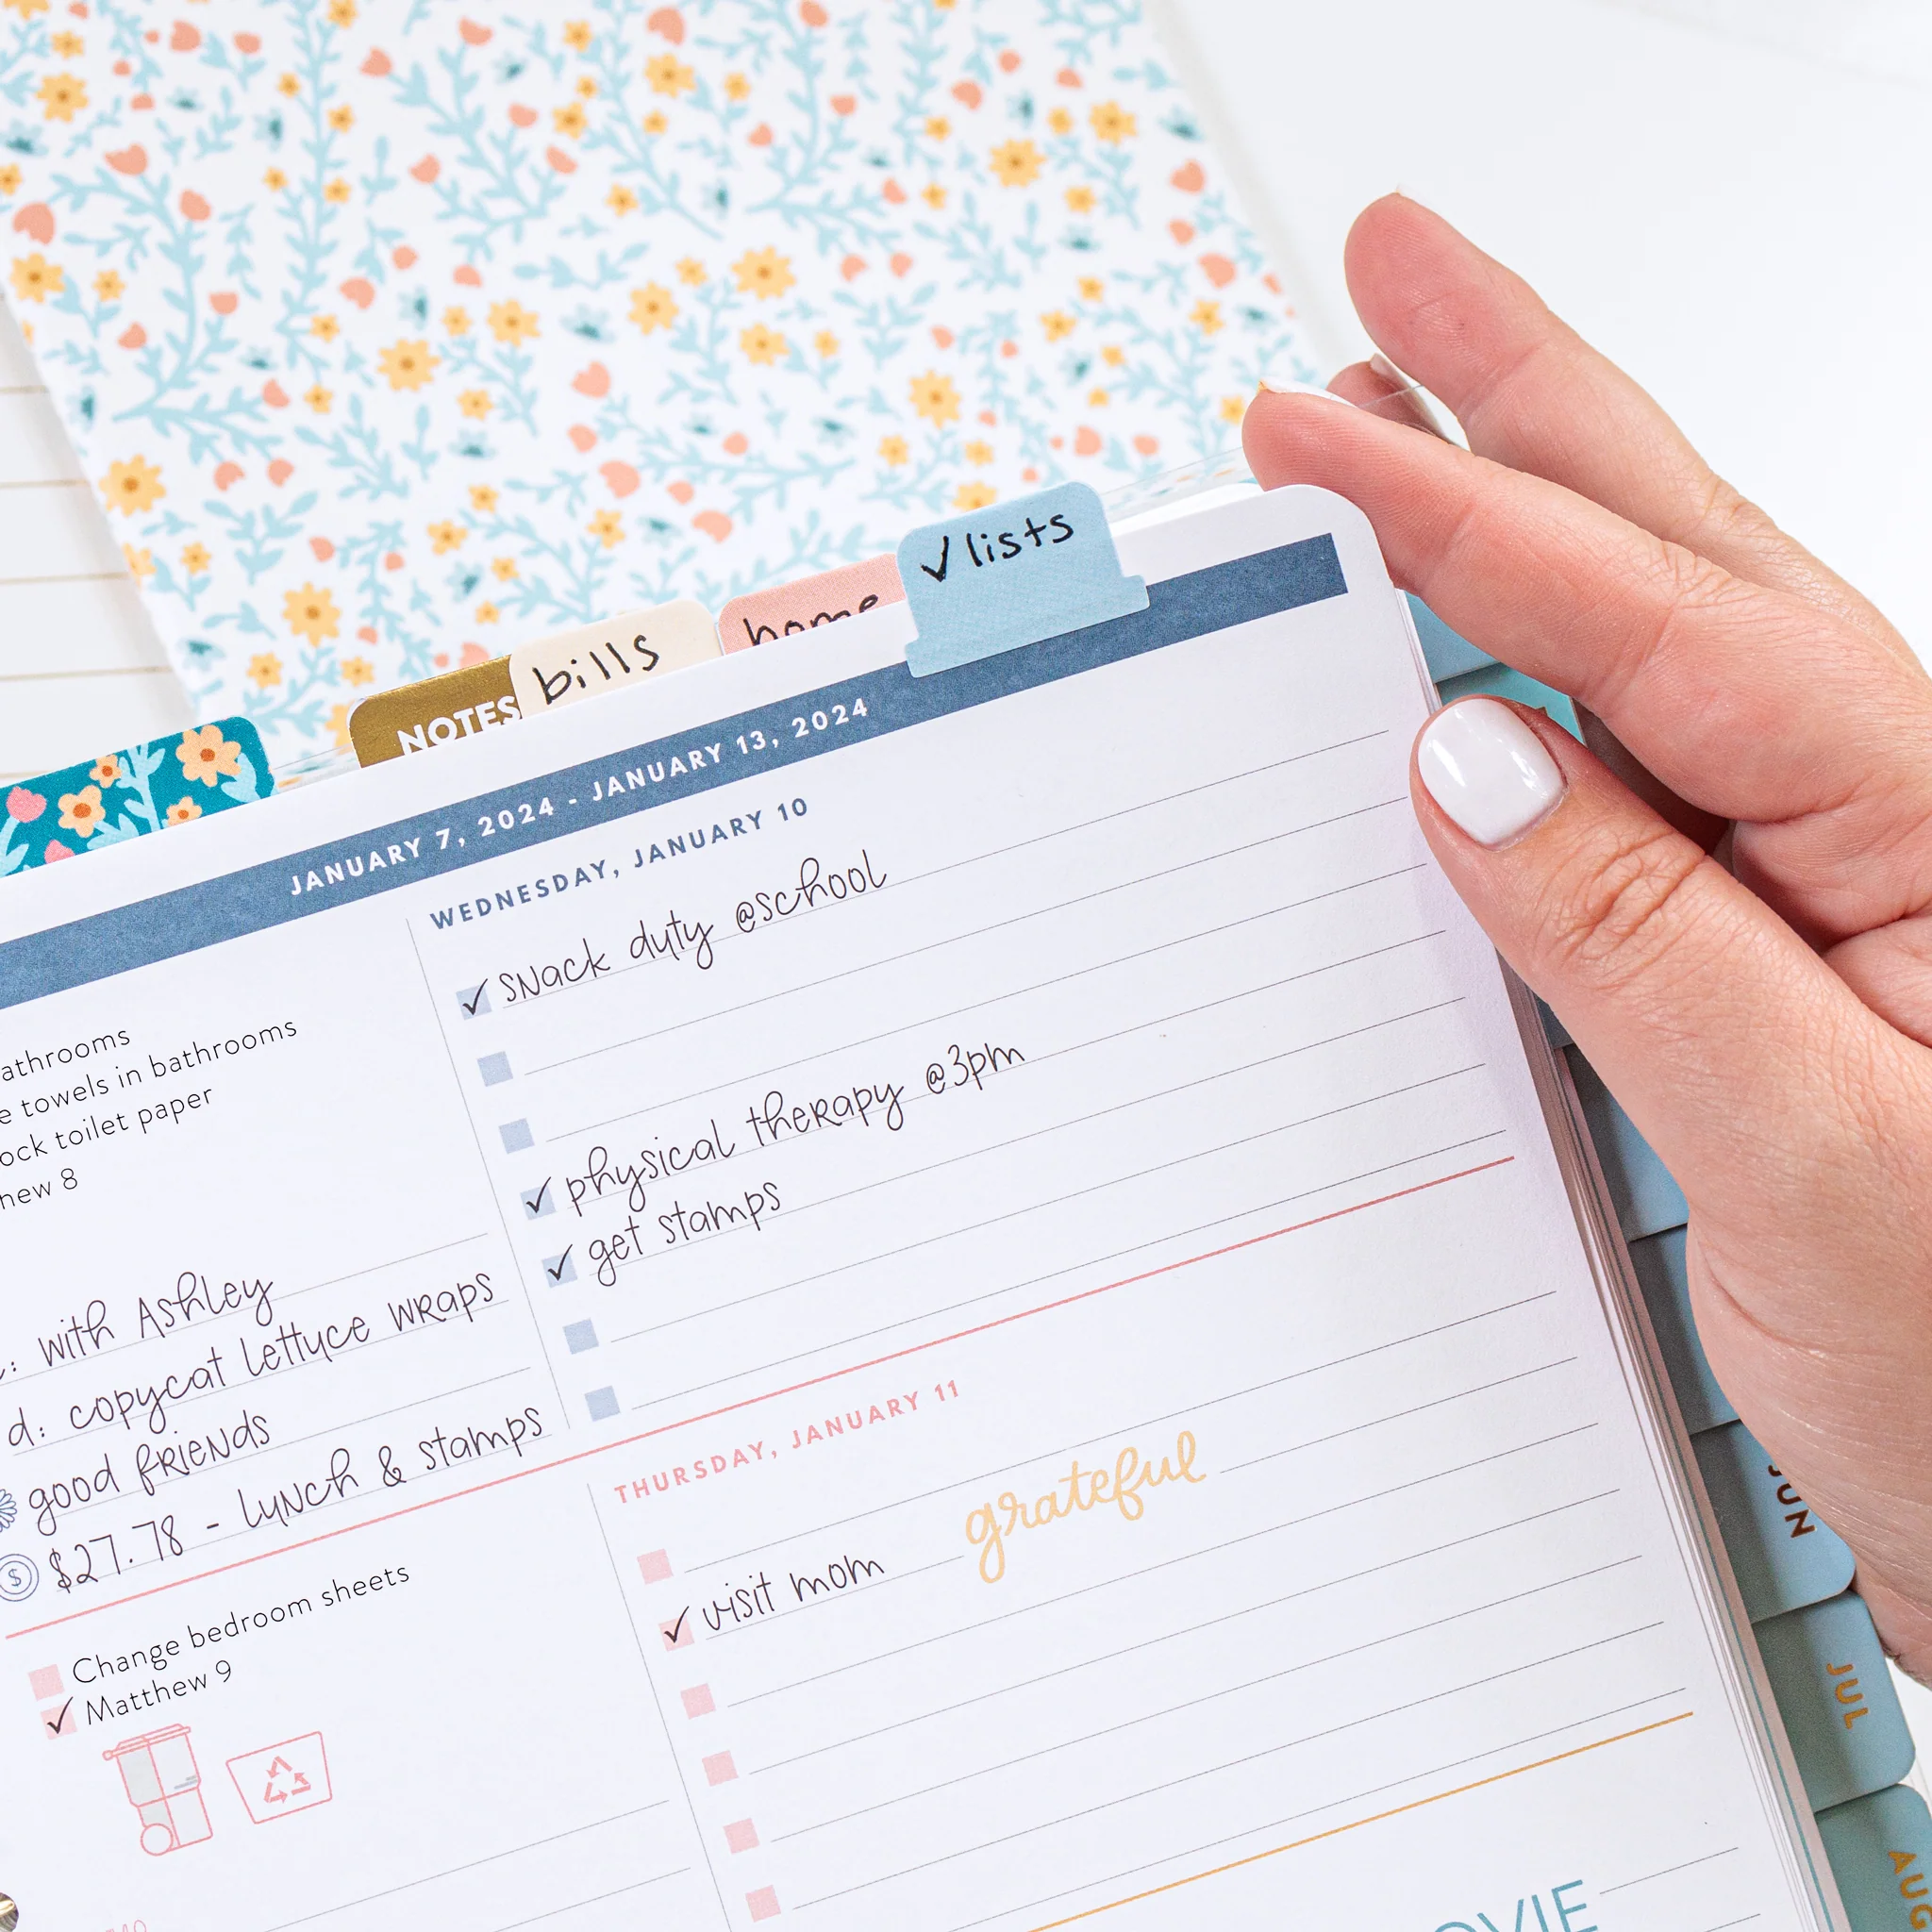 ✓ lists
home
bills
NOTES
JANUARY 7, 2024 - JANUARY 13, 2024
WEDNESDAY, JANUARY 10
✓ snack duty @school
✓ physical therapy @3pm
✓ get stamps
athrooms
e towels in bathrooms
ock toilet paper
hew 8
: with Ashley
d: copycat lettuce wraps
good friends
$ $27.78 - lunch & stamps
THURSDAY, JANUARY 11
grateful
✓ visit mom
Change bedroom sheets
✓ Matthew 9
OVIE
JUN
JUL
AUG